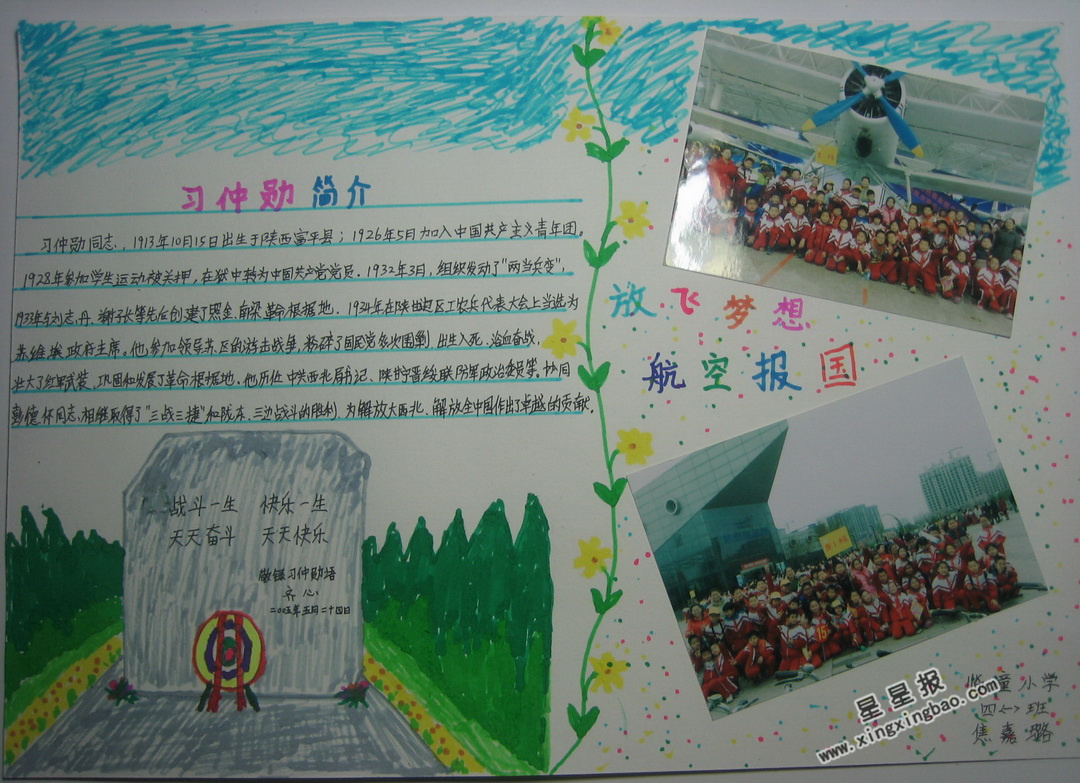 习仲勋简介
习仲勋同志，1913年10月15日出生于陕西富平县；1926年5月加入中国共产主义青年团。
1928年参加学生运动被关押，在狱中转为中国共产党党员。1932年3月，组织发动了"两当兵变"，
1933年与刘志丹、谢子长等先后创建了照金、南梁革命根据地。1934年在陕甘边区工农兵代表大会上当选为
苏维埃政府主席。他参加领导苏区的游击战争，粉碎了国民党多次围剿，出生入死、浴血奋战，
壮大了红军武装、巩固和发展了革命根据地。他历任中共西北局书记、陕甘宁晋绥联防军政治委员等，协同
彭德怀同志，相继取得了"三战三捷"和陇东、三边战斗的胜利，为解放大西北、解放全中国作出了卓越的贡献。
战斗一生 快乐一生
天天奋斗 天天快乐
敬録习仲勋语
齐心
二〇〇五年五月二十四日
放飞梦想
航空报国
临潼小学
四〈一〉班
焦嘉璐
星星报
www.xingxingbao.com